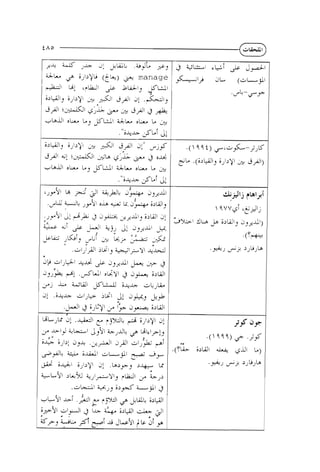 الملحقات ٤٨٥
الحصول على أشياء استثنائية في
المؤسسات) سان فرانسيسكو
جوسي-باس.
وغير مألوفة. بالمقابل إن جذر كلمة يدير
manage يعني (يعالج) فالإدارة هي معالجة
المشاكل والحفاظ على النظام، إنها التنظيم
والتحكّم. إن الفرق الكبير بين الإدارة والقيادة
يظهر في الفرق بين معنى جذري الكلمتين؛ الفرق
بين ما معناه معالجة المشاكل وما معناه الذهاب
إلى أماكن جديدة".
كارتر-سكوت، سي (١٩٩٤).
(الفرق بين الإدارة والقيادة). مانج
كوزس "إن الفرق الكبير بين الإدارة والقيادة
تجده في معنى جذري هاتين الكلمتين؛ إنه الفرق
بين ما معناه معالجة المشاكل وما معناه الذهاب
إلى أماكن جديدة".
أبراهام زاليزنك
زاليزنغ، أي ١٩٧٧
(المديرون والقادة هل هناك اختلاف
بينهم؟).
هارفارد بزنس ريفيو.
المديرون مهتمون بالطريقة التي تُنجز بها الأمور،
والقادة مهتمون بما تعنيه هذه الأمور بالنسبة للناس.
إن القادة والمديرين يختلفون في نظرتهم إلى الأمور.
يميل المديرون إلى رؤية العمل على أنه عملية
تمكين تتضمن مزيجاً بين أناس وأفكار تتفاعل
لتحديد الاستراتيجية واتخاذ القرارات.
في حين يعمل المديرون على تحديد الخيارات فإنّ
القادة يعملون في الاتجاه المعاكس. إنهم يطوّرون
مقاربات جديدة للمشاكل القائمة منذ زمن
طويل ويميلون إلى اتخاذ خيارات جديدة. إن
القادة يصنعون جواً من الإثارة في العمل.
جون كوتر
كوتر. جي (١٩٩٩).
(ما الذي يفعله القادة حقاً؟).
هارفارد بزنس ريفيو.
إن الإدارة تهتم بالتلاؤم مع التعقيد. إن ممارساتها
وإجراءاتها هي بالدرجة الأولى استجابة لواحد من
أهم تطورات القرن العشرين. بدون إدارة جيّدة
سوف تصبح المؤسسات المعقدة مليئة بالفوضى
مما سيهدد وجودها. إن الإدارة الجيدة تحقق
درجة من النظام والاستمرارية للأبعاد الأساسية
في المؤسسة كجودة وربحية المنتجات.
القيادة بالمقابل هي التلاؤم مع التغيّر. أحد الأسباب
التي جعلت القيادة مهمّة جداً في السنوات الأخيرة
هو أنّ عالم الأعمال قد أصبح أكثر منافسة وحركة